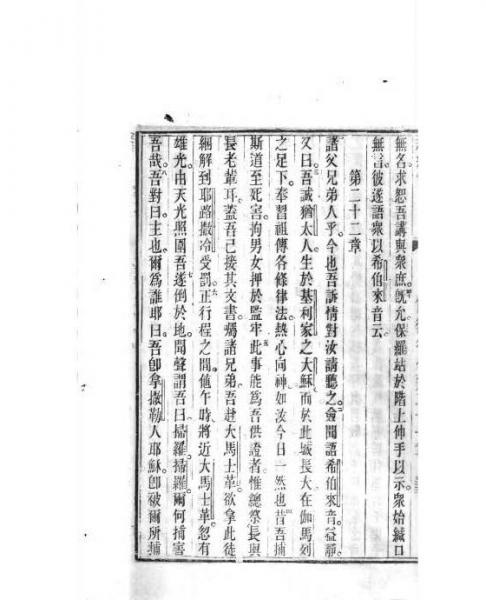 無名求恕吾講與衆庶旣允保羅站於階上伸手以示衆始緘口
無言彼遂語衆以希伯來音云
第二十二章
諸父兄弟人乎今也吾訴情對汝請聽之僉聞語希伯來音益靜
又曰吾誠猶太人生於基利家之大穌而於此城長大在伽馬列
之足下奉習祖傳各條律法熱心向神如汝今日一然也昔吾捕
斯道至死害拘男女押於監牢此事能爲吾供證者惟總祭長與
長老輩耳蓋吾已接其文書囑諸兄弟吾赴大馬士革欲拿此徒
綑解到耶路撒冷受罰正行程之間値午時將近大馬士革忽有
雄光由天光照圍吾遂倒於地聞聲謂吾曰掃羅掃羅爾何捕害
吾哉吾對曰主也爾爲誰耶曰吾卽拿撒勒人耶穌卽被爾所捕